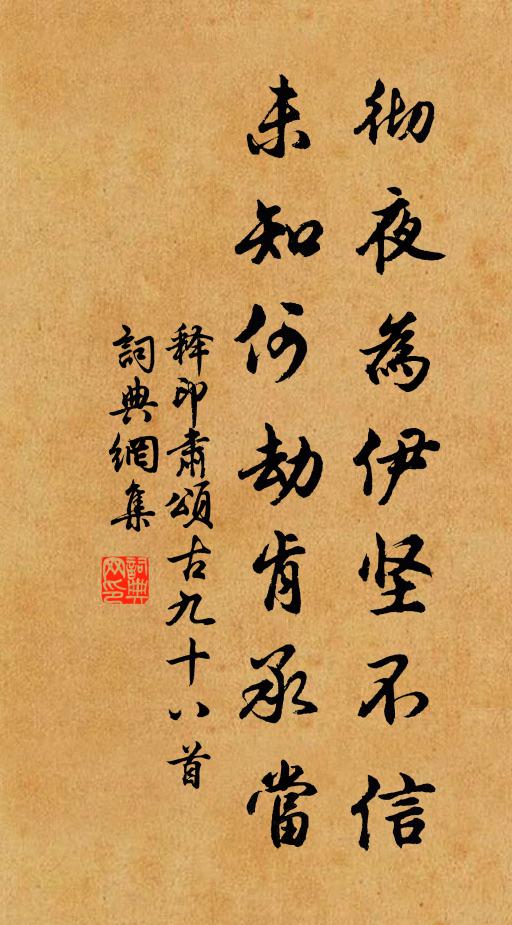 彻夜為伊坚不信
未知何劫肯承當
释印肃頌古九十八首
詞典網集
詞典网印